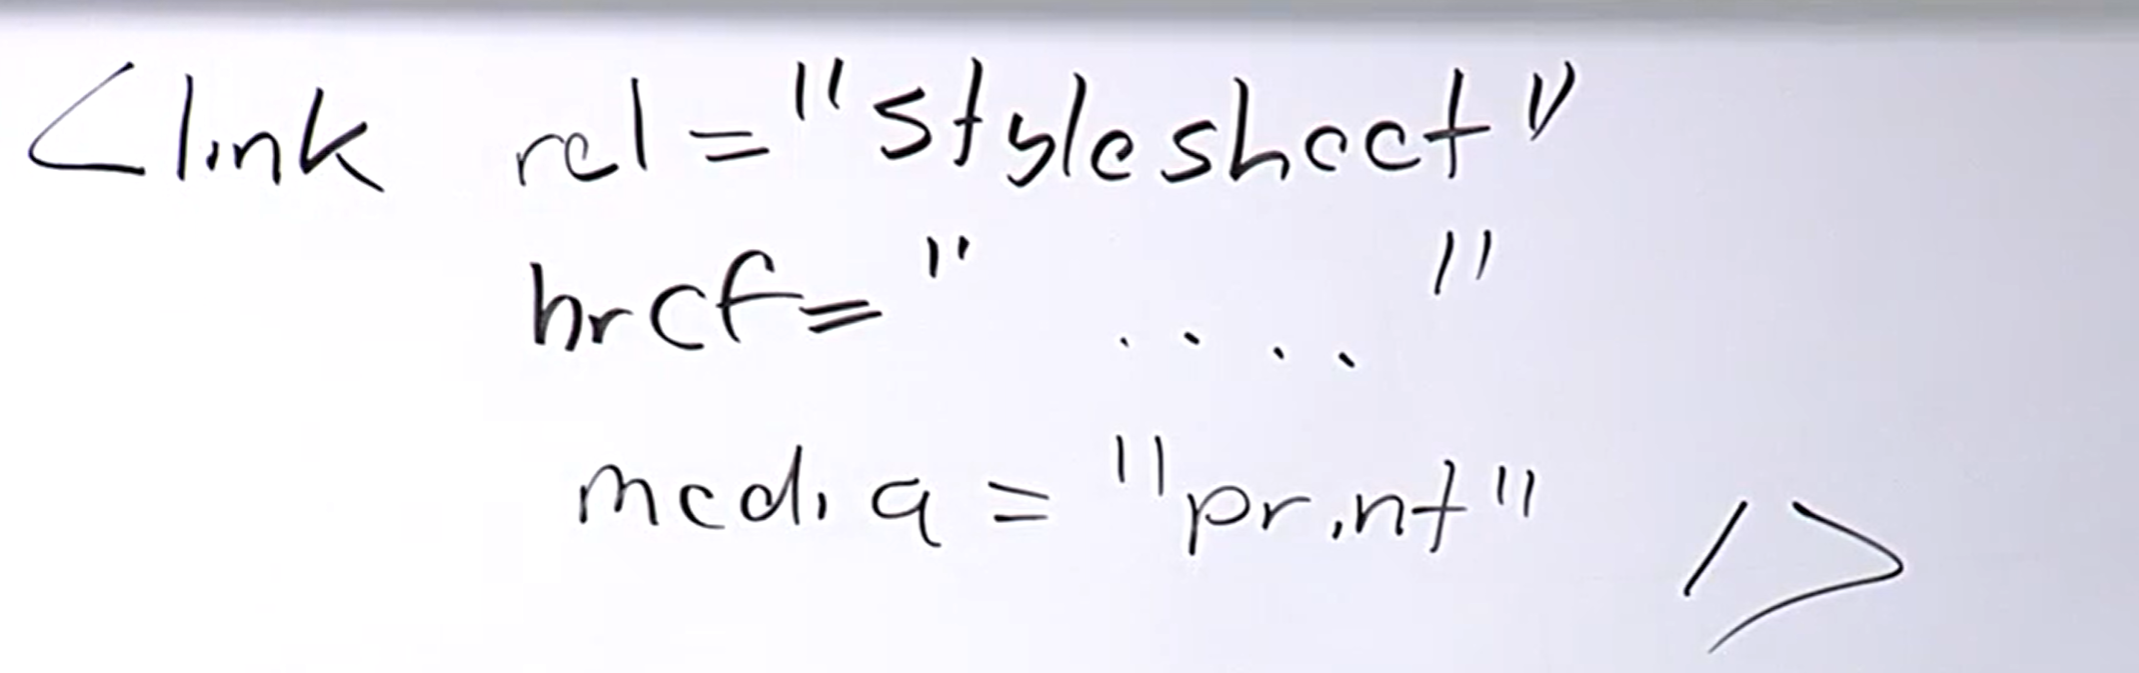 <link rel="stylesheet"
href=" .... "
media="print" />